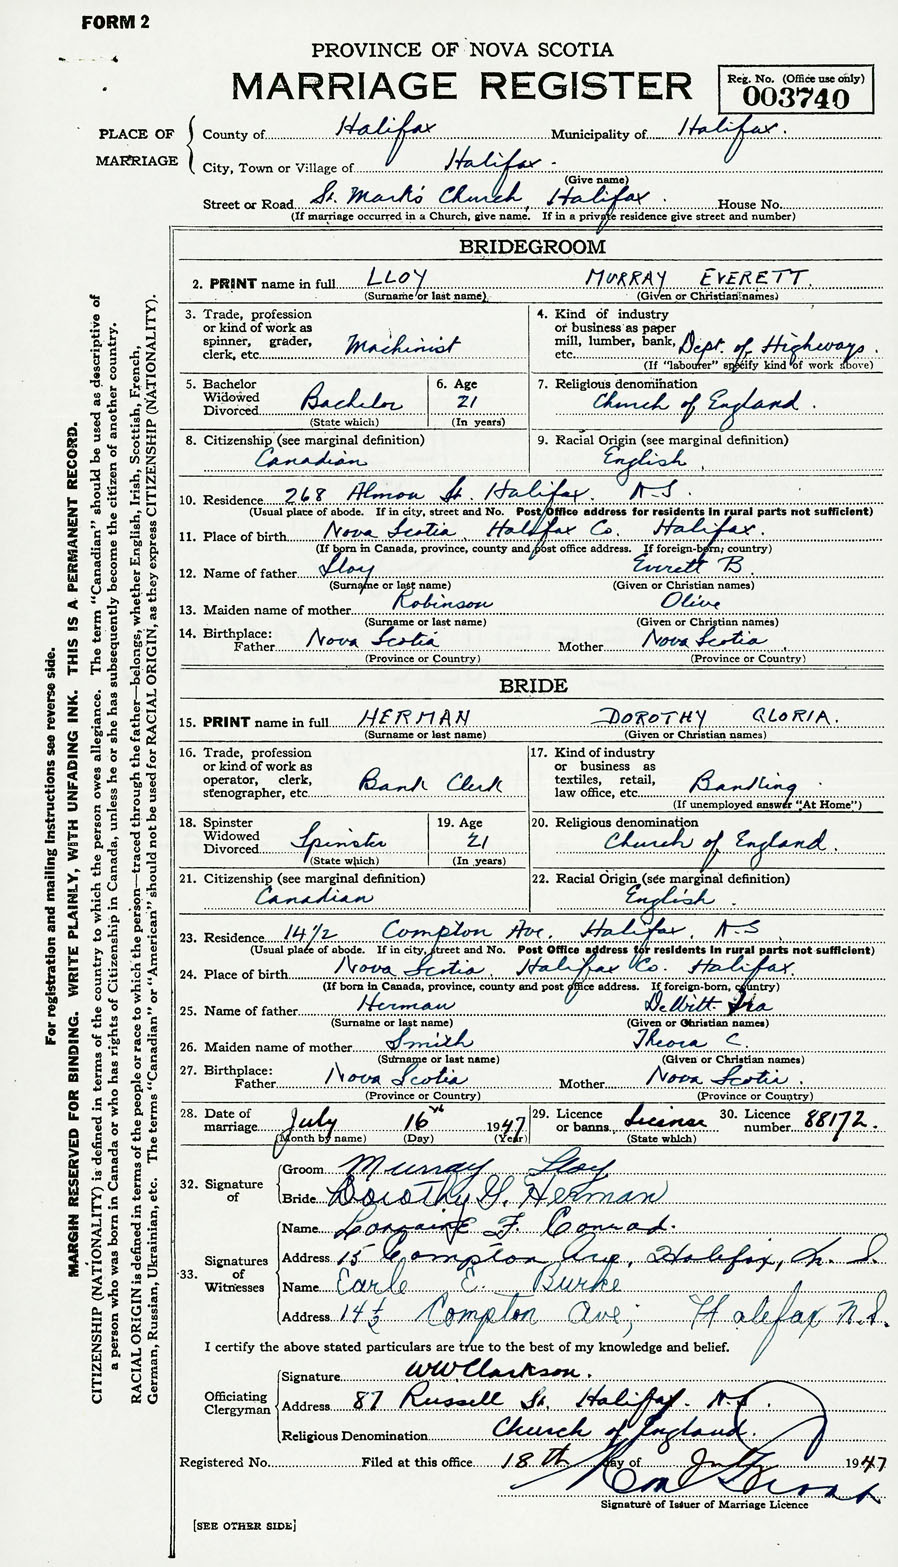 FORM 2
PROVINCE OF NOVA SCOTIA
MARRIAGE REGISTER
Reg. No. (Office use only)
003740
PLACE OF MARRIAGE
County of Halifax Municipality of Halifax.
City, Town or Village of Halifax.
(Give name)
Street or Road St. Mark's Church, Halifax. House No.
(If marriage occurred in a Church, give name. If in a private residence give street and number)
BRIDEGROOM
2. PRINT name in full LLOY MURRAY EVERETT.
(Surname or last name) (Given or Christian names)
3. Trade, profession or kind of work as spinner, grader, clerk, etc. Machinist
4. Kind of industry or business as paper mill, lumber, bank, etc. Dept. of Highways.
(If "labourer" specify kind of work above)
5. Bachelor Widowed Divorced Bachelor
(State which)
6. Age 21
(In years)
7. Religious denomination
Church of England.
8. Citizenship (see marginal definition)
Canadian
9. Racial Origin (see marginal definition)
English
10. Residence 268 Almon St. Halifax. N.S.
(Usual place of abode. If in city, street and No. Post Office address for residents in rural parts not sufficient)
11. Place of birth Nova Scotia, Halifax Co. Halifax.
(If born in Canada, province, county and post office address. If foreign-born, country)
12. Name of father Lloy Everett B.
(Surname or last name) (Given or Christian names)
13. Maiden name of mother Robinson Olive
(Surname or last name) (Given or Christian names)
14. Birthplace: Father Nova Scotia Mother Nova Scotia
(Province or Country) (Province or Country)
BRIDE
15. PRINT name in full HERMAN DOROTHY GLORIA.
(Surname or last name) (Given or Christian names)
16. Trade, profession or kind of work as operator, clerk, stenographer, etc. Bank Clerk
17. Kind of industry or business as textiles, retail, law office, etc. Banking.
(If unemployed answer "At Home")
18. Spinster Widowed Divorced Spinster
(State which)
19. Age 21
(In years)
20. Religious denomination
Church of England.
21. Citizenship (see marginal definition)
Canadian
22. Racial Origin (see marginal definition)
English.
23. Residence 14 1/2 Compton Ave. Halifax. N.S
(Usual place of abode. If in city, street and No. Post Office address for residents in rural parts not sufficient)
24. Place of birth Nova Scotia, Halifax Co. Halifax.
(If born in Canada, province, county and post office address. If foreign-born, country)
25. Name of father Herman DeWitt Ira
(Surname or last name) (Given or Christian names)
26. Maiden name of mother Smith Theora C.
(Surname or last name) (Given or Christian names)
27. Birthplace: Father Nova Scotia Mother Nova Scotia.
(Province or Country) (Province or Country)
28. Date of marriage July 16th 1947
(Month by name) (Day) (Year)
29. Licence or banns License
(State which)
30. Licence number 88172.
32. Signature of
Groom Murray Lloy
Bride Dorothy G. Herman
33. Signatures of Witnesses
Name Lorraine F. Conrad.
Address 15 Compton Ave, Halifax, N. S.
Name Earle E. Burke
Address 14 1/2 Compton Ave; Halifax N.S.
I certify the above stated particulars are true to the best of my knowledge and belief.
Officiating Clergyman
Signature WW Clarkson.
Address 87 Russell St. Halifax. N.S.
Religious Denomination Church of England.
Registered No. Filed at this office 18th day of July 1947
Signature of Issuer of Marriage Licence
[SEE OTHER SIDE]
For registration and mailing instructions see reverse side.
MARGIN RESERVED FOR BINDING. WRITE PLAINLY, WITH UNFADING INK. THIS IS A PERMANENT RECORD.
CITIZENSHIP (NATIONALITY) is defined in terms of the country to which the person owes allegiance. The term "Canadian" should be used as descriptive of
a person who was born in Canada or who has rights of Citizenship in Canada, unless he or she has subsequently become the citizen of another country.
RACIAL ORIGIN is defined in terms of the people or race to which the person—traced through the father—belongs, whether English, Irish, Scottish, French,
German, Russian, Ukrainian, etc. The terms "Canadian" or "American" should not be used for RACIAL ORIGIN, as they express CITIZENSHIP (NATIONALITY).